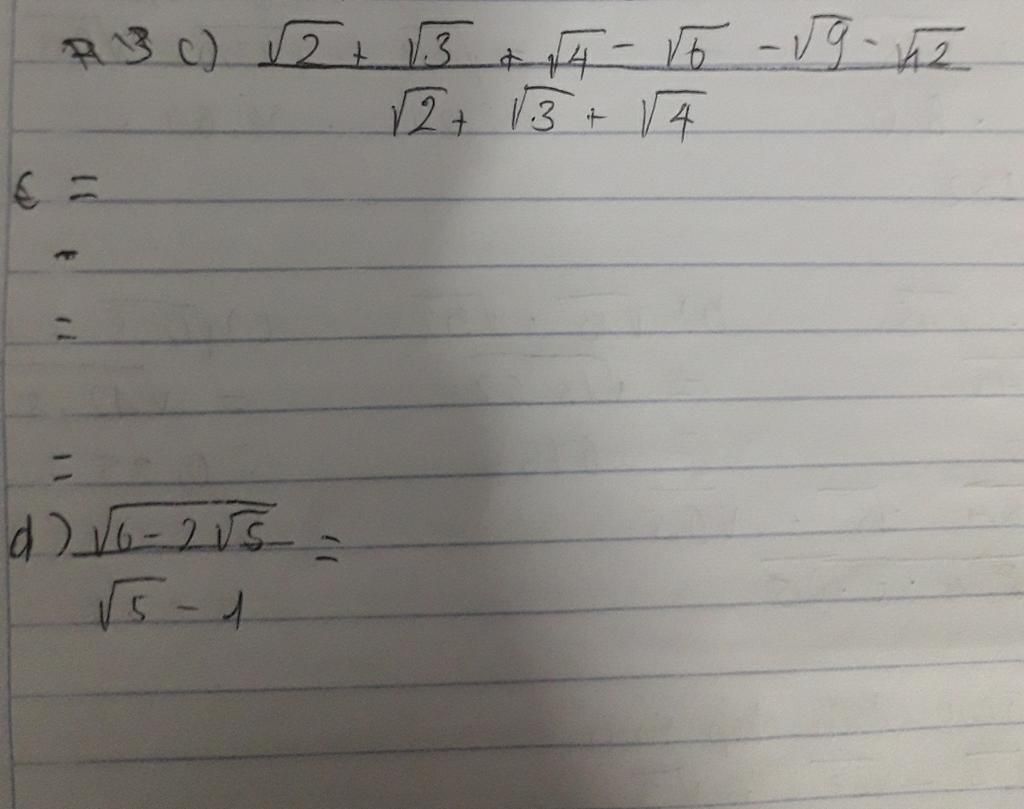 3 c) √2 + √3 + √4 - √6 - √9 - √12
√2 + √3 + √4
=
-
=
=
d) √6-2√5 =
√5 - 1